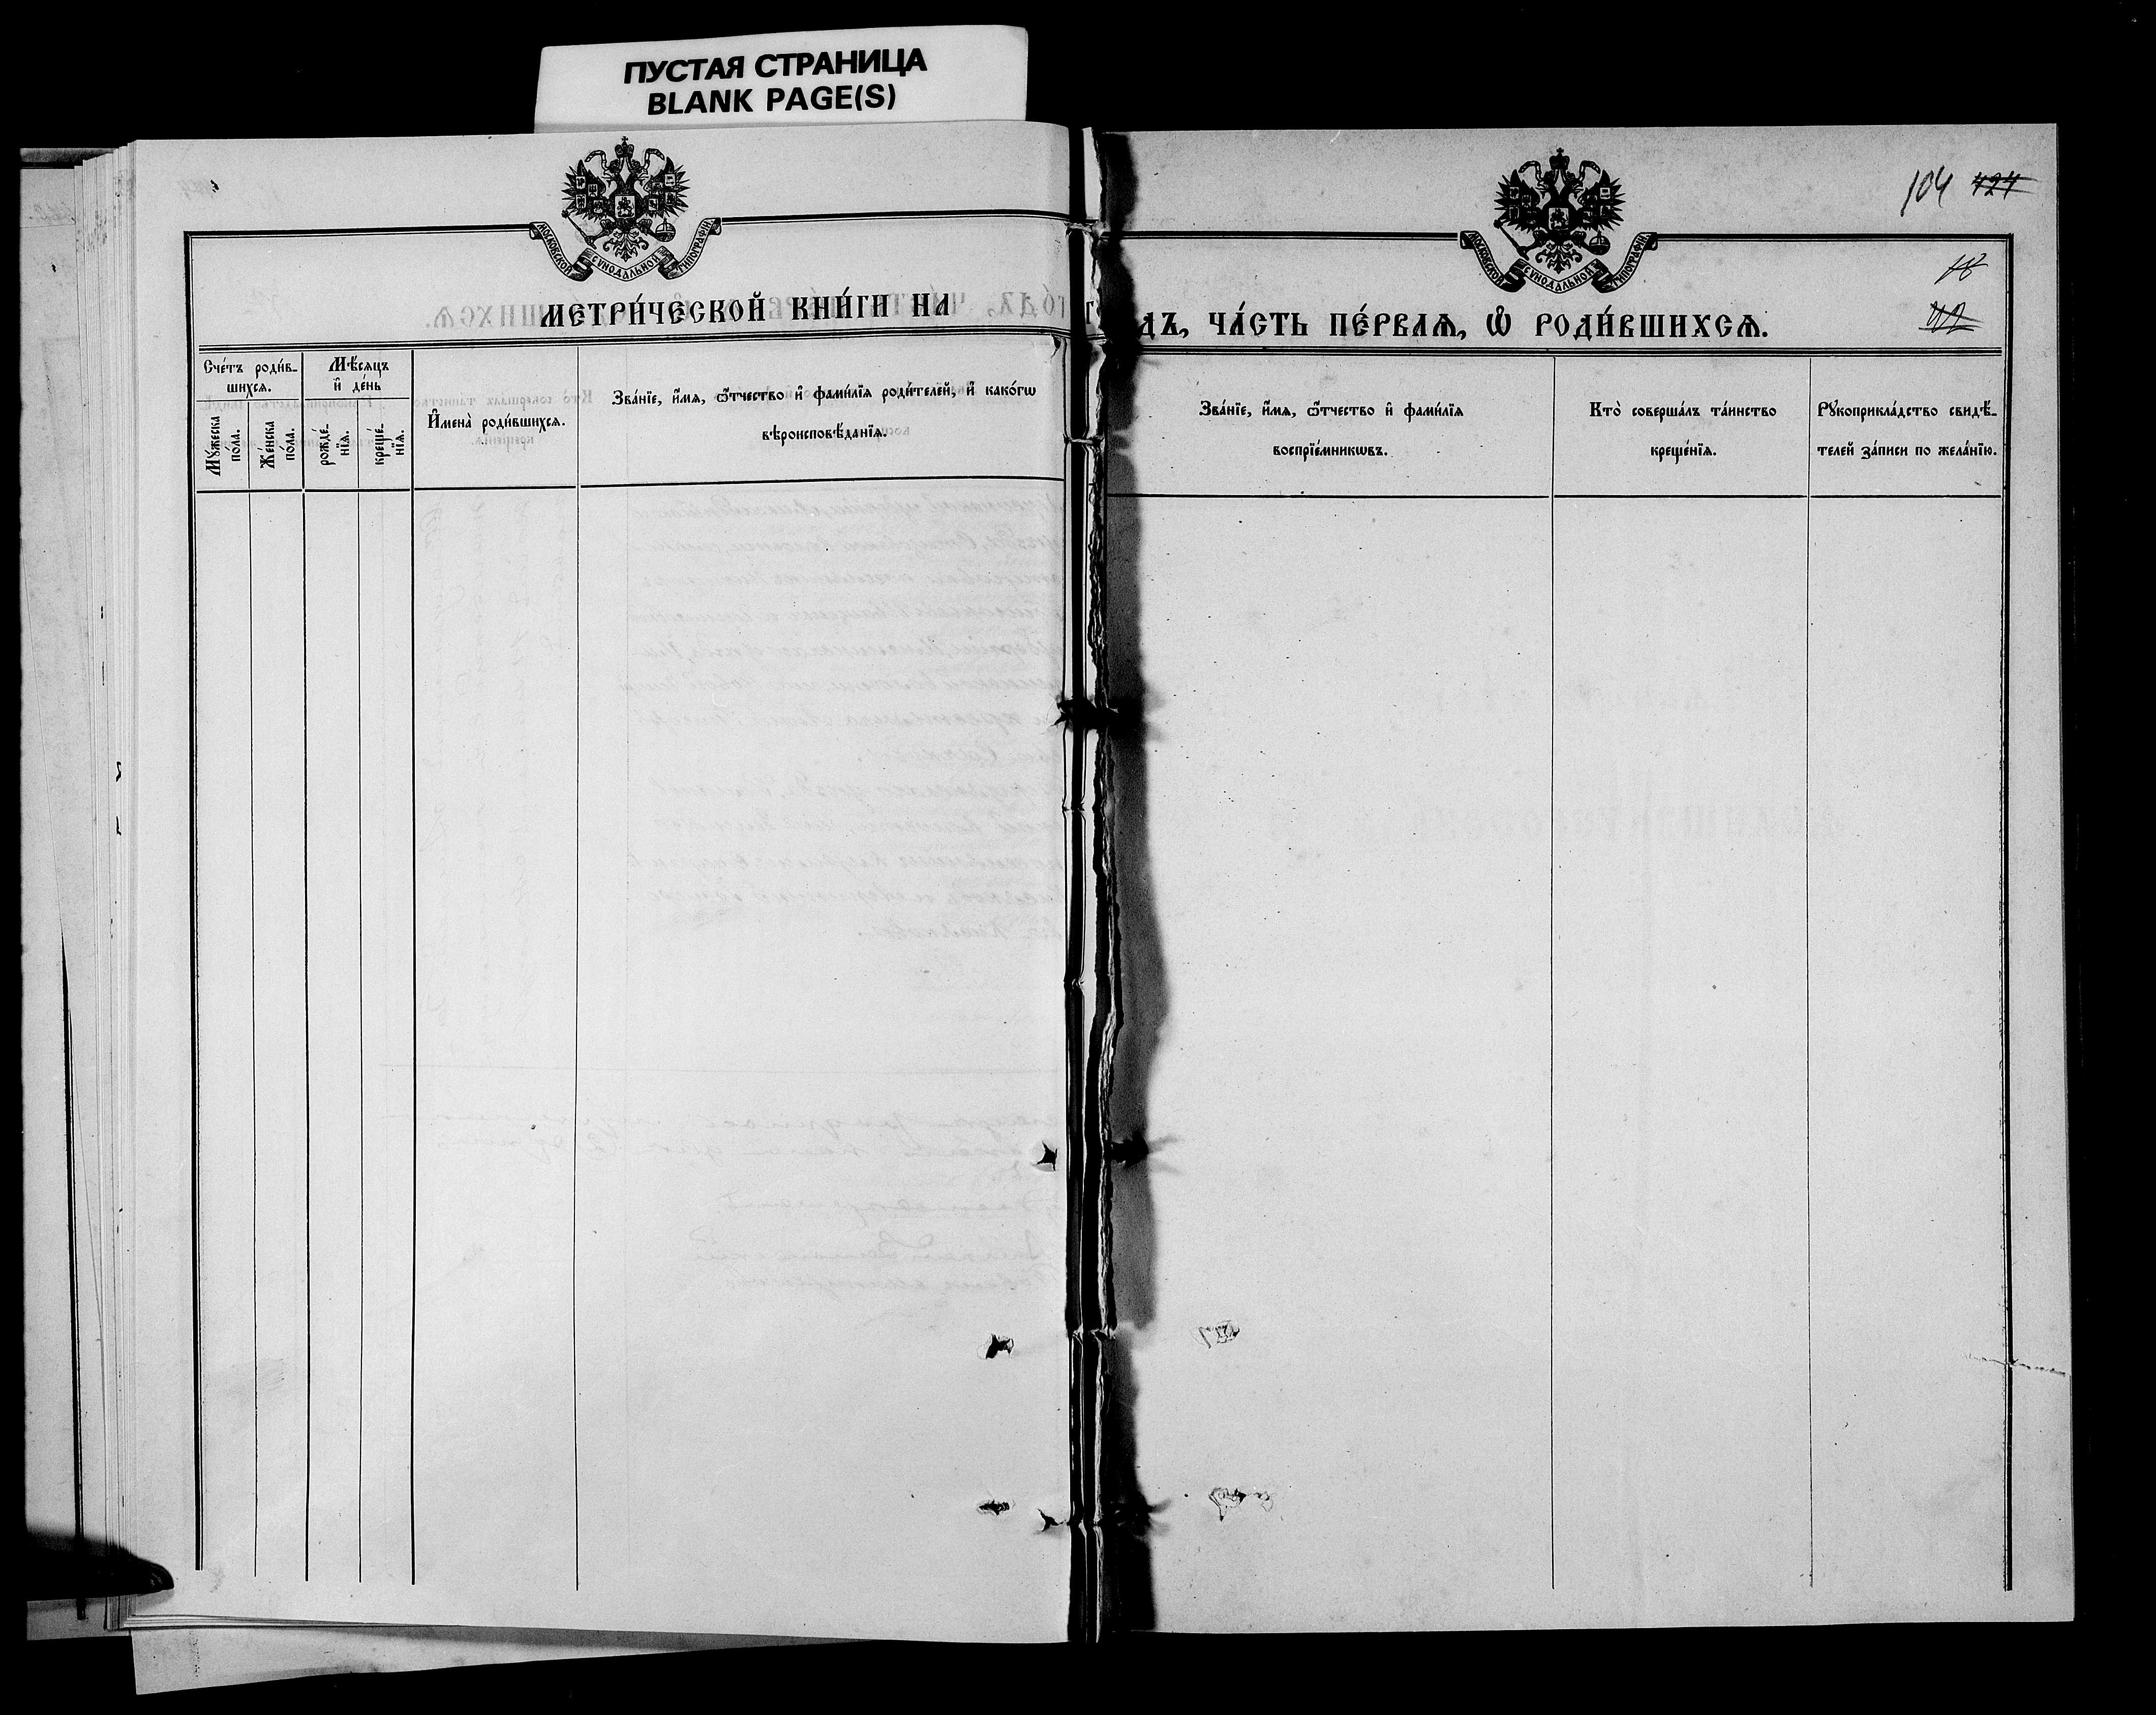 ПУСТАЯ СТРАНИЦА
BLANK PAGE(S)
МОСКОВСКОЙ СѴНОДАЛЬНОЙ ТИПОГРАФІИ
МЕТРИ́ЧЕСКОЙ КНИ́ГИ НА
Сче́тъ роди́в-
шихсѧ.
Мѣ́сѧцъ
и҆ де́нь
Мꙋ́жеска
по́ла.
Же́нска
по́ла.
рожде́-
нїѧ.
креще́-
нїѧ.
И҆мена̀ роди́вшихсѧ.
Зва́нїе, и҆́мѧ, ѻ҆́тчество и҆ фами́лїѧ роди́телей, и҆ како́гѡ
вѣроисповѣ́данїѧ.
104 424
МОСКОВСКОЙ СѴНОДАЛЬНОЙ ТИПОГРАФІИ
ДЪ, ЧА́СТЬ ПЕ́РВАѦ, Ѡ҆ РОДИ́ВШИХСѦ.
Зва́нїе, и҆́мѧ, ѻ҆́тчество и҆ фами́лїѧ
воспрїе́мникѡвъ.
Кто̀ соверша́лъ та́инство
креще́нїѧ.
Рꙋкоприкла́дство свидѣ́-
телей за́писи по жела́нїю.